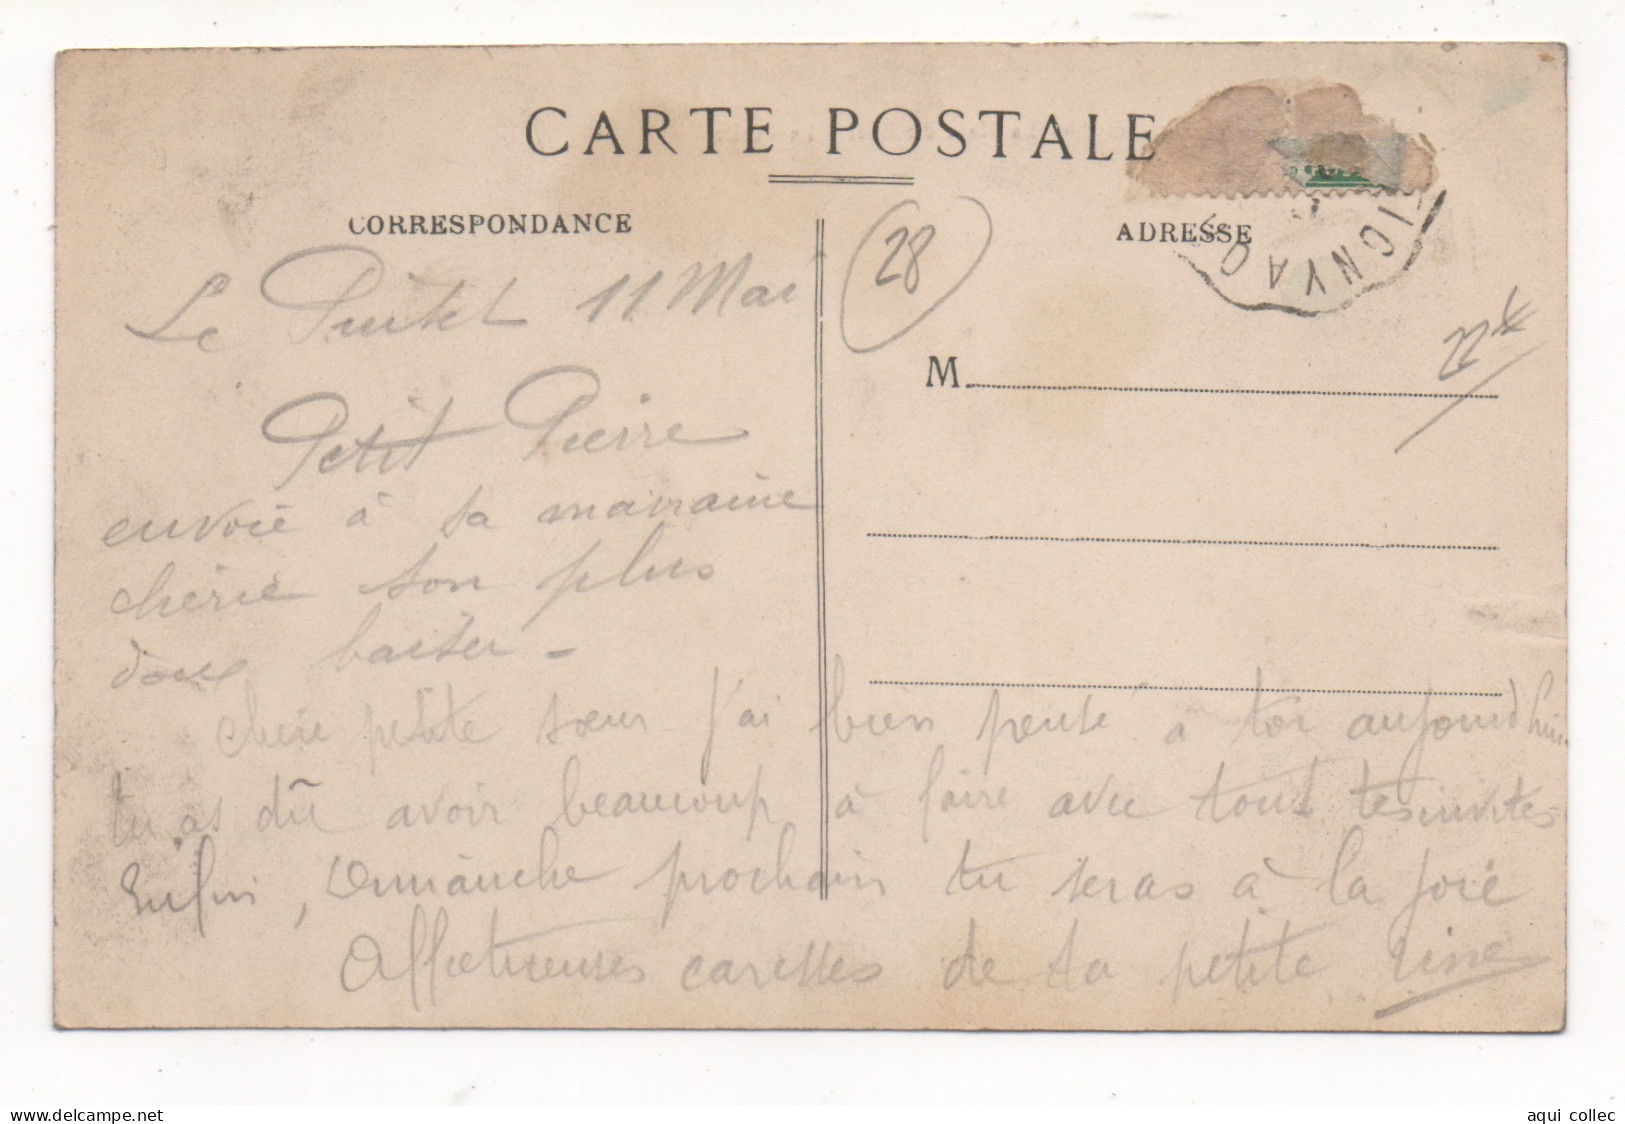 CARTE POSTALE
CORRESPONDANCE
ADRESSE
28
IGNYAO
M
Le Puiset 11 Mai
Petit Pierre
envoie à sa marraine
chérie son plus
doux baiser -
Chère petite sœur j'ai bien pensé à toi aujourd'hui.
tu as dû avoir beaucoup à faire avec tout tes invités
Enfin, dimanche prochain tu seras à la joie
Affectueuses caresses de ta petite
www.delcampe.net
aqui collec